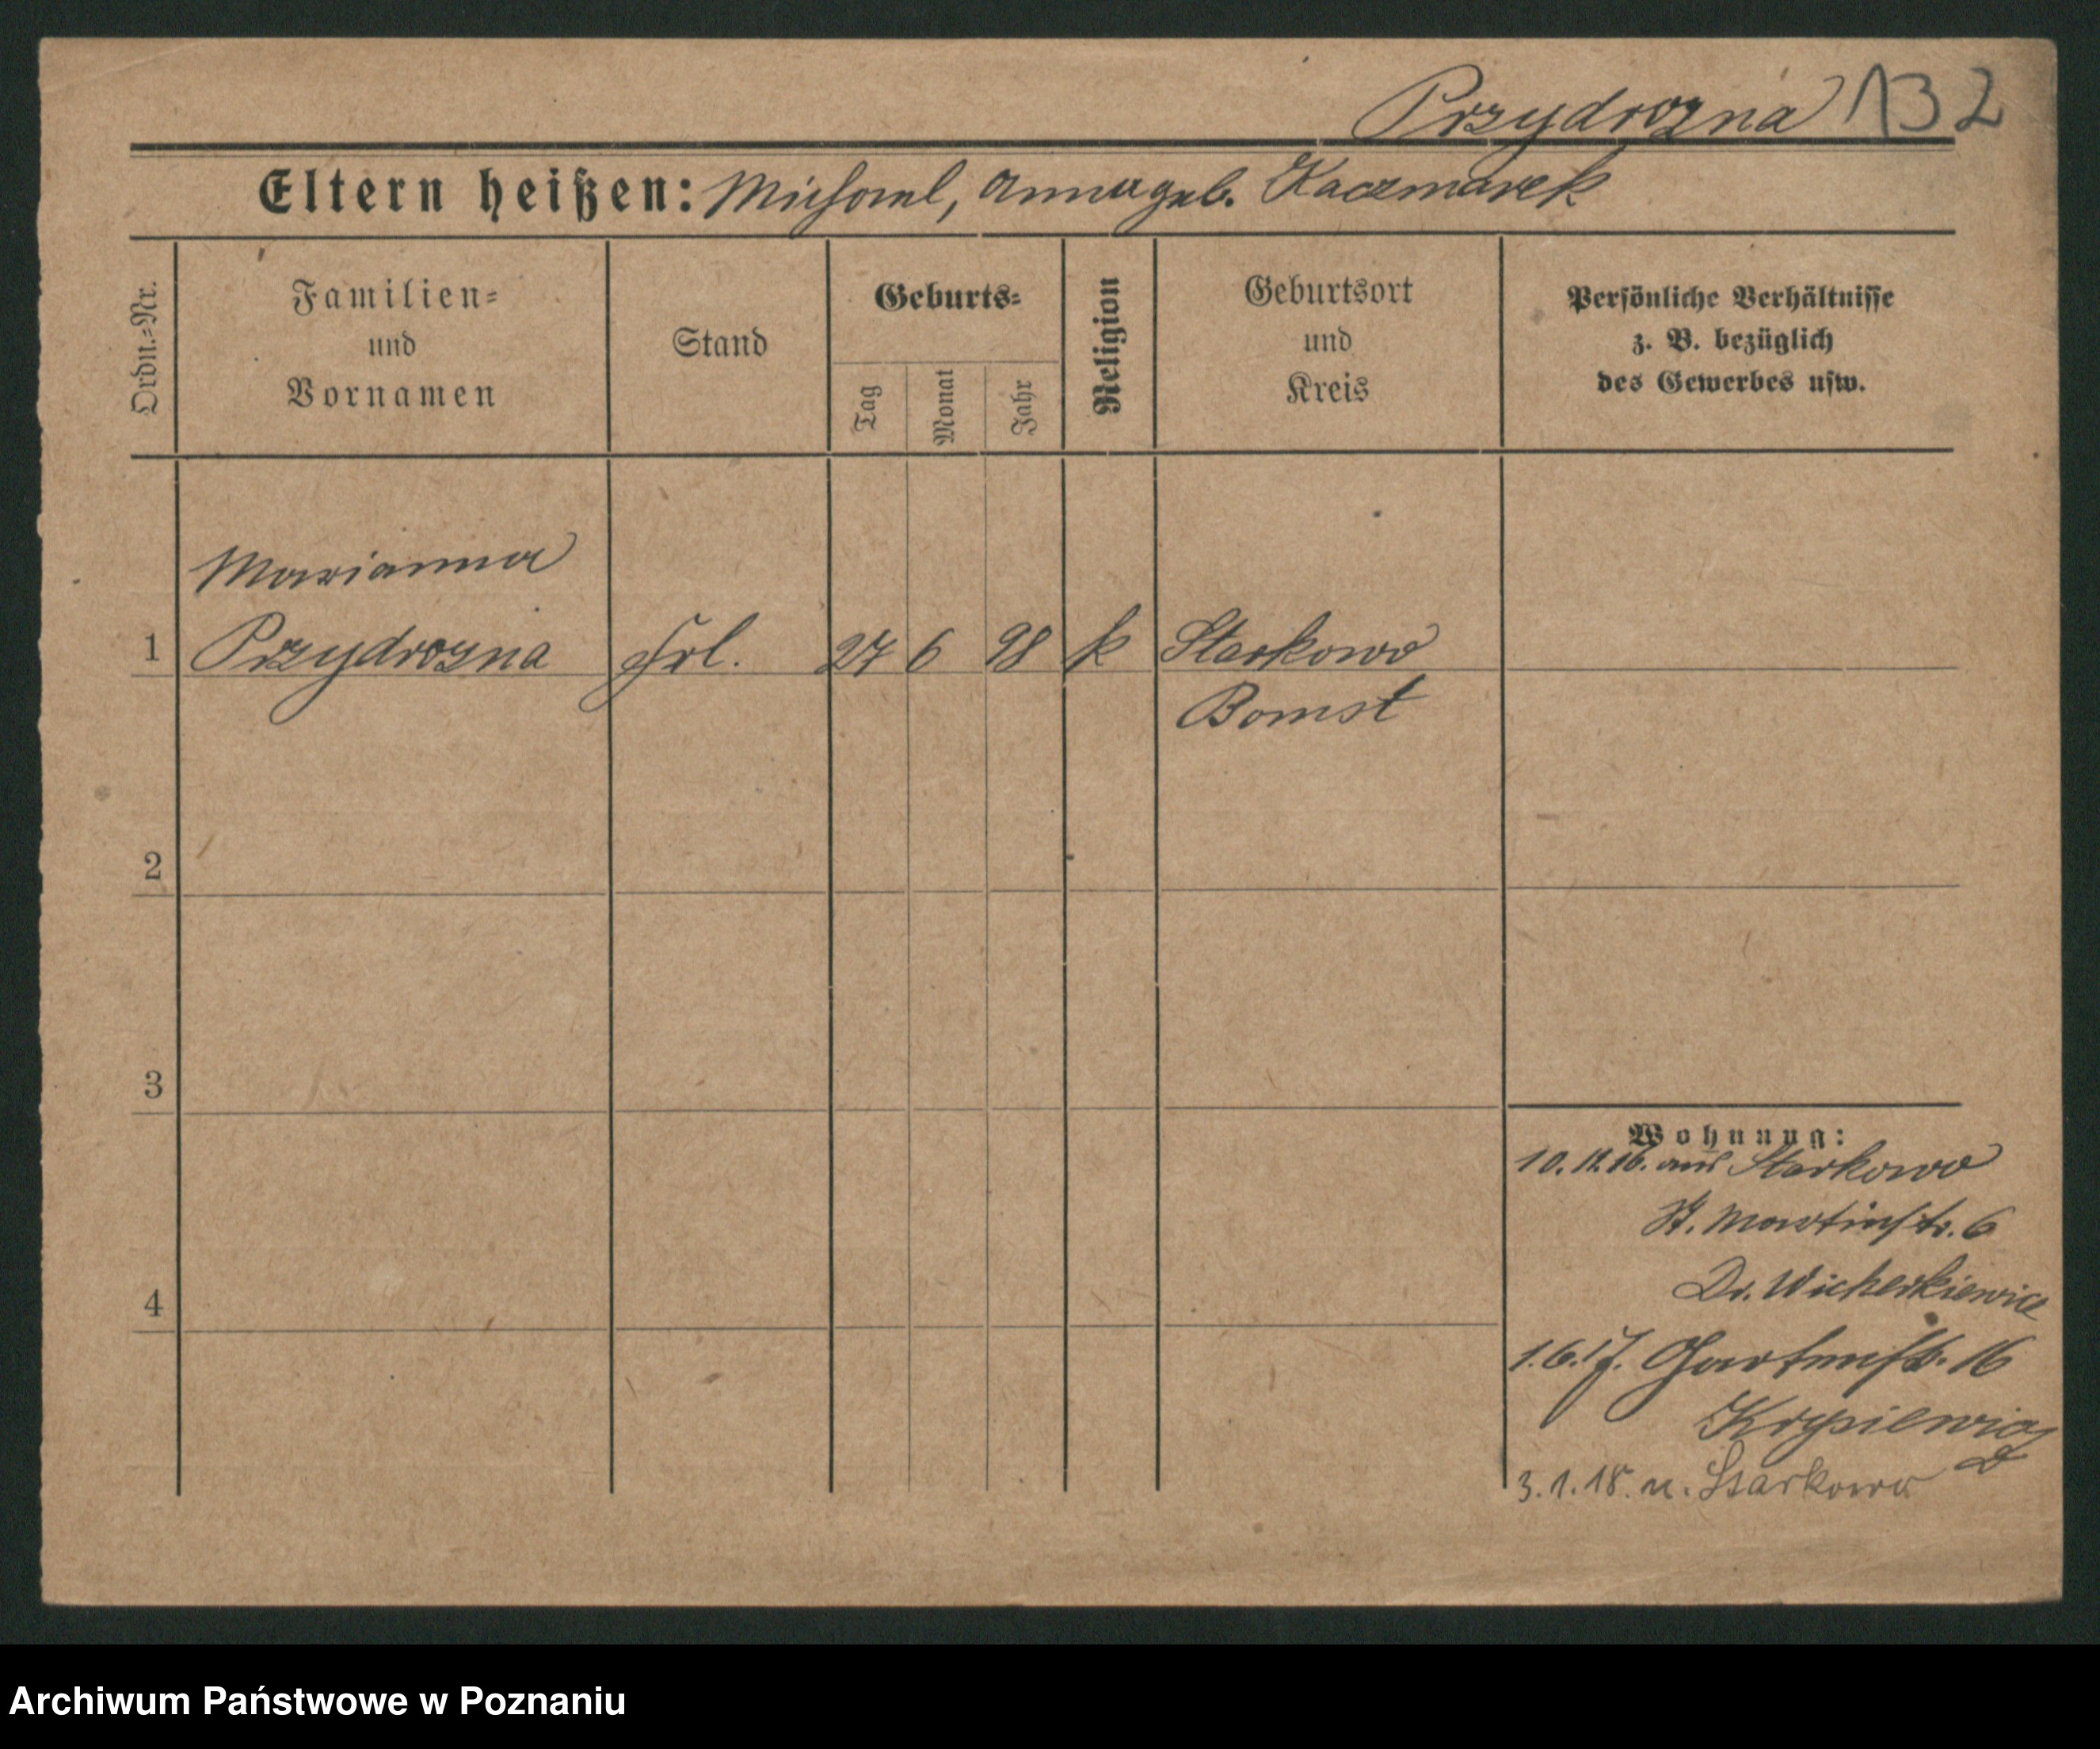 Przydrozna 132
Eltern heißen: Michael, Anna geb. Kaczmarek
Ordn.=Nr.
Familien=
und
Vornamen
Stand
Geburts=
Tag
Monat
Jahr
Religion
Geburtsort
und
Kreis
Persönliche Verhältnisse
z. B. bezüglich
des Gewerbes usw.
Marianna
1 Przydrozna Frl. 27 6 98 k Starkowo
Bomst
2
3
4
Wohnung:
10.11.16. aus Starkowo
St. Martinstr. 6
Dr. Wicherkiewicz
1.6.17. Gartenstr. 16
Krysiewicz
3.1.18. n. Starkowo
Archiwum Państwowe w Poznaniu